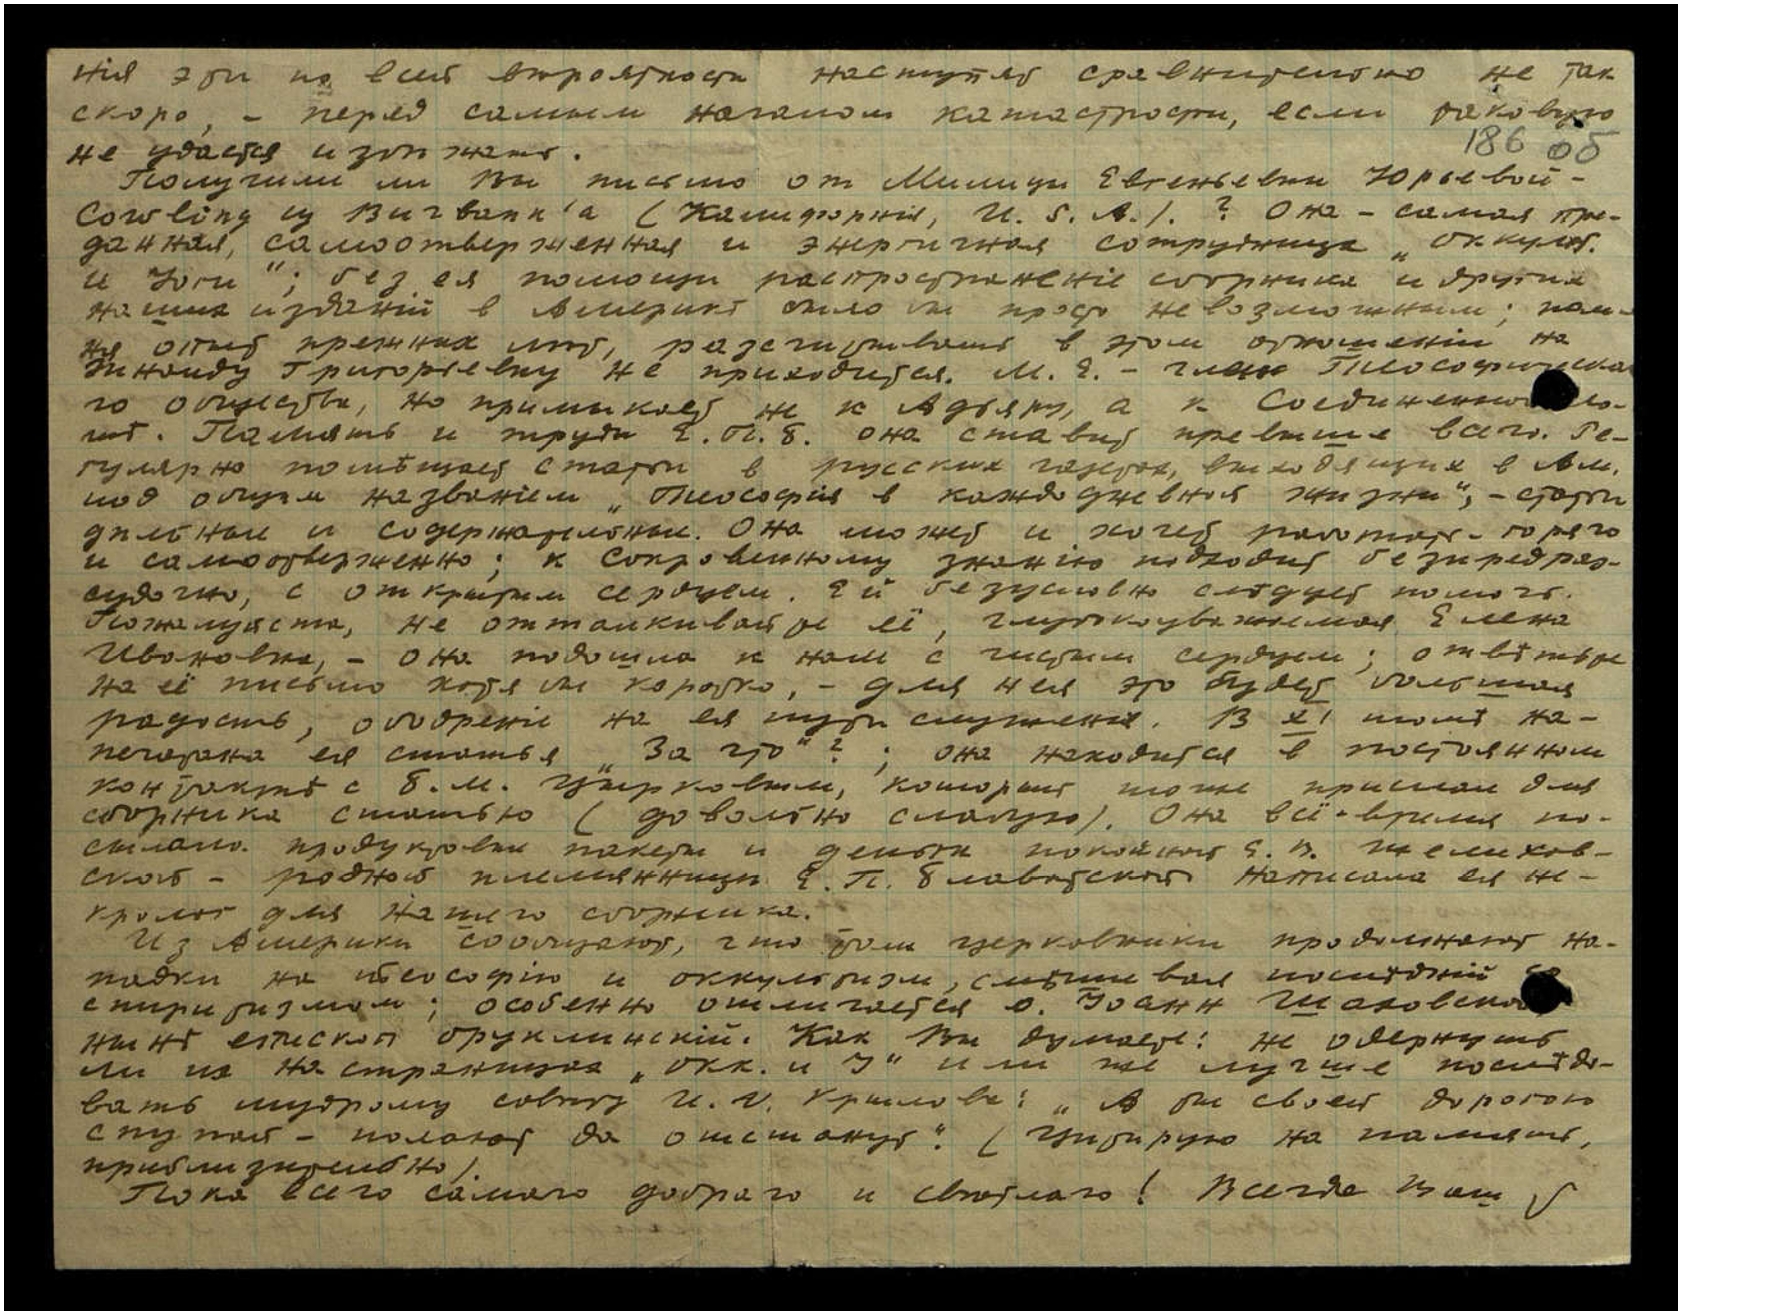 нія эти по всей вѣроятности наступят сравнительно не так
скоро, – перед самым началом катастрофы, если таковую
186 об
не удастся избѣжать.
Получили ли Вы письмо от Милицы Евгеньевны Юрьевой-
Cowling из Burbank'а (Калифорнія, U. S. A.). ? Она – самая пре-
данная, самоотверженная и энергичная сотрудница „Оккульт.
и Іоги"; без ея помощи распространеніе сборника и других
наших изданій в Америкѣ было бы просто невозможным;
опыт прежних лѣт, разсчитывать в этом отношеніи на
Зинаиду Григорьевну не приходится. М. Е. – член Теософическа-
го общества, но примыкает не к Адьяру, а к Соединенной Ло-
жѣ. Память и труды Е. П. Б. она ставит превыше всего. Ре-
гулярно помѣщает статьи в русских газетах, выходящих в Ам.
под общим названіем „Теософія в каждодневной жизни", – статьи
дѣльныя и содержательныя. Она может и хочет работать горячо
и самоотверженно; к Сокровенному знанію подходит безпредраз-
судочно, с открытым сердцем. Ей безусловно слѣдует помочь.
Пожалуйста, не отталкивайте её, глубокоуважаемая Елена
Ивановна, – она подошла к нам с чистым сердцем; отвѣтьте
на её письмо хотя бы коротко, – для нея это будет большая
радость, ободреніе на ея пути служенія. В XI томѣ на-
печатана ея статья „За что"?; она находится в постоянном
контактѣ с Б. М. Цырковым, который тоже прислал для
сборника статью (довольно слабую). Она всё время по-
сылала продуктовые пакеты и деньги покойной Е. В. Желихов-
ской – родной племянницы Е. П. Блаватской. Написала ея не-
кролог для нашего сборника.
Из Америки сообщают, что там церковники продолжают на-
падки на теософію и оккультизм, смѣшивая послѣдній со
спиритизмом; особенно отличается о. Іоанн Шаховской
нынѣ епископ бруклинскій. Как Вы думаете: не одернуть
ли их на страницах „Окк. и І" или же лучше послѣдо-
вать мудрому совѣту И. А. Крылова: „А ты своей дорогою
ступай – полают да отстанут". (Цитирую на память,
приблизительно).
Пока всего самаго добраго и свѣтлаго! Всегда Ваш